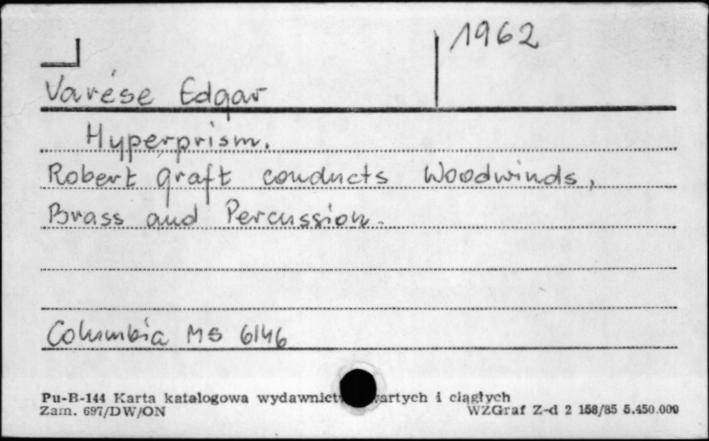 1962
Varése Edgar
Hyperprism.
Robert graft conducts Woodwinds,
Brass and Percussion.
Columbia MS 6146
Pu-B-144 Karta katalogowa wydawnict wartych i ciągłych
Zam. 697/DW/ON WZGraf Z-d 2 158/85 5.450.000